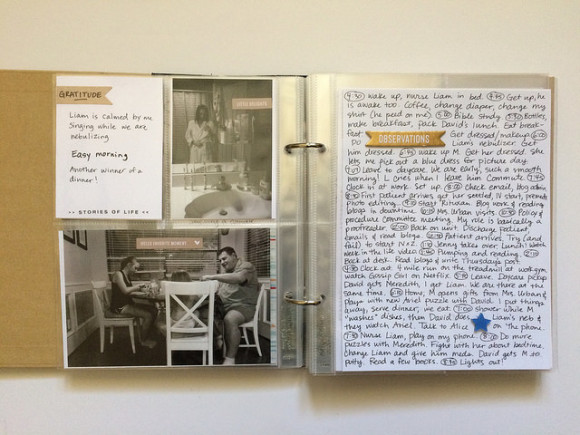 GRATITUDE
Liam is calmed by me
Singing while we are
nebulizing
Easy morning
Another winner of a
dinner!
>> STORIES OF LIFE <<
4:30 wake up, nurse Liam in bed. Get up, he
is awake too. Coffee, change diaper, change my
shirt (he peed on me) Bible Study. Bottles,
make breakfast, pack David's lunch. Eat break-
fast OBSERVATIONS Get dressed/makeup 6:00
Do Liam's nebulizer. Get
him dressed. wake up M. Get her dressed. She
lets me pick out a blue dress for picture day.
Leave to daycare. We are early, such a smooth
morning! L cries when I leave him. Commute
Clock in at work. Set up. check email, blog admin
First patient arrives, get her settled, IV start, promote
Photo editing. Start Rituxan. Blog work & reading
blogs in downtime. Mrs. Urban visits. Policy &
procedure committee meeting. My role is basically a
proofreader. Back on unit. Discharge patient,
emails & read blogs. Patient arrives. Try (and
fail) to start IV x2. Jenny takes over. Lunch! Watch
week in the life video. Pumping and reading.
Back at desk. Read blogs & write Thursday's post.
4:30 Clock out. 4 mile run on the treadmill at work gym,
watch Gossip Girl on Netflix. Leave. Daycare pickup
David gets Meredith, I get Liam. We are there at the
same time. Home. M opens gifts from Mrs. Urban &
plays with new Ariel puzzle with David. I put things
away, serve dinner, we eat. 7:00 Shower while M
"washes" dishes, then David does Liam's neb &
they watch Ariel. Talk to Alice on the phone.
Nurse Liam, play on my phone. Do more
puzzles with Meredith. Fight with her about bedtime.
Change Liam and give him meds. David gets M to
potty. Read a few books. Lights out!